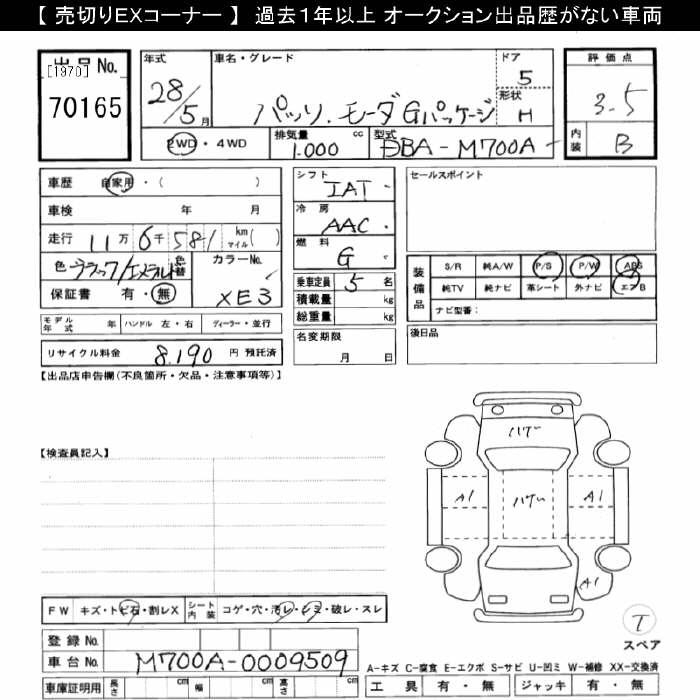 【 売切りEXコーナー 】 過去1年以上 オークション出品歴がない車両
出品 No.
[1970]
70165
年式
28/5月
車名・グレード
パッソ . モーダGパッケージ
ドア
5
形状
H
評価点
3.5
内装
B
2WD・4WD
排気量 cc
1.000
型式
DBA-M700A
車歴 自家用・( )
車検 年 月
走行 11万 6千 581 km マイル( )
色 ブラック/エメラルド
色替
カラーNo.
XE3
保証書 有・無
モデル年式 年 ハンドル 左・右 ディーラー・並行
リサイクル料金 8.190 円 預託済
シフト
IAT
冷房
AAC
燃料
G
乗車定員 5 名
積載量 kg
総重量 kg
名変期限
月 日
セールスポイント
装備品
S/R 純A/W P/S P/W ABS
純TV 純ナビ 革シート 外ナビ エアB
ナビ型番:
後日品
【出品店申告欄(不良箇所・欠品・注意事項等)】
【検査員記入】
ハゲー
A1
ハゲい
A1
A1
T
スペア
FW キズ・トビ石・割レX
シート内装 コゲ・穴・汚レ・シミ・破レ・スレ
登録 No.
車台 No. M700A-0009509
車庫証明用 長さ cm 幅 cm 高さ cm
A-キズ C-腐食 E-エクボ S-サビ U-凹ミ W-補修 XX-交換済
工具 有・無 ジャッキ 有・無